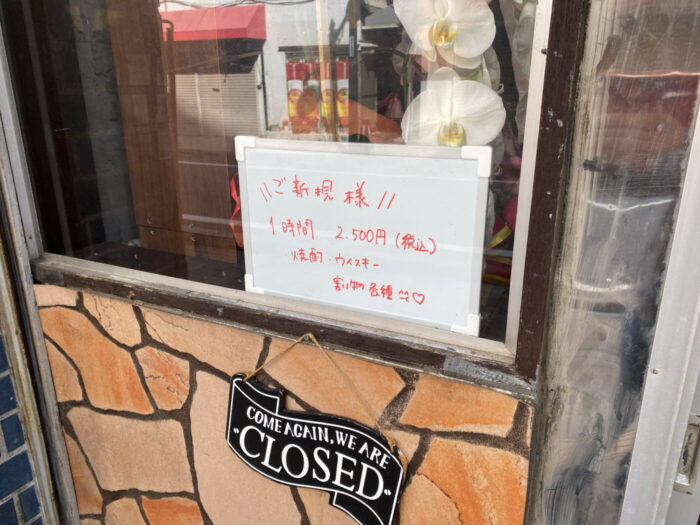 \\ ご新規様 //
1時間 2.500円 (税込)
・焼酎・ウィスキー
割り物各種 ^^♡
COME AGAIN, WE ARE
CLOSED